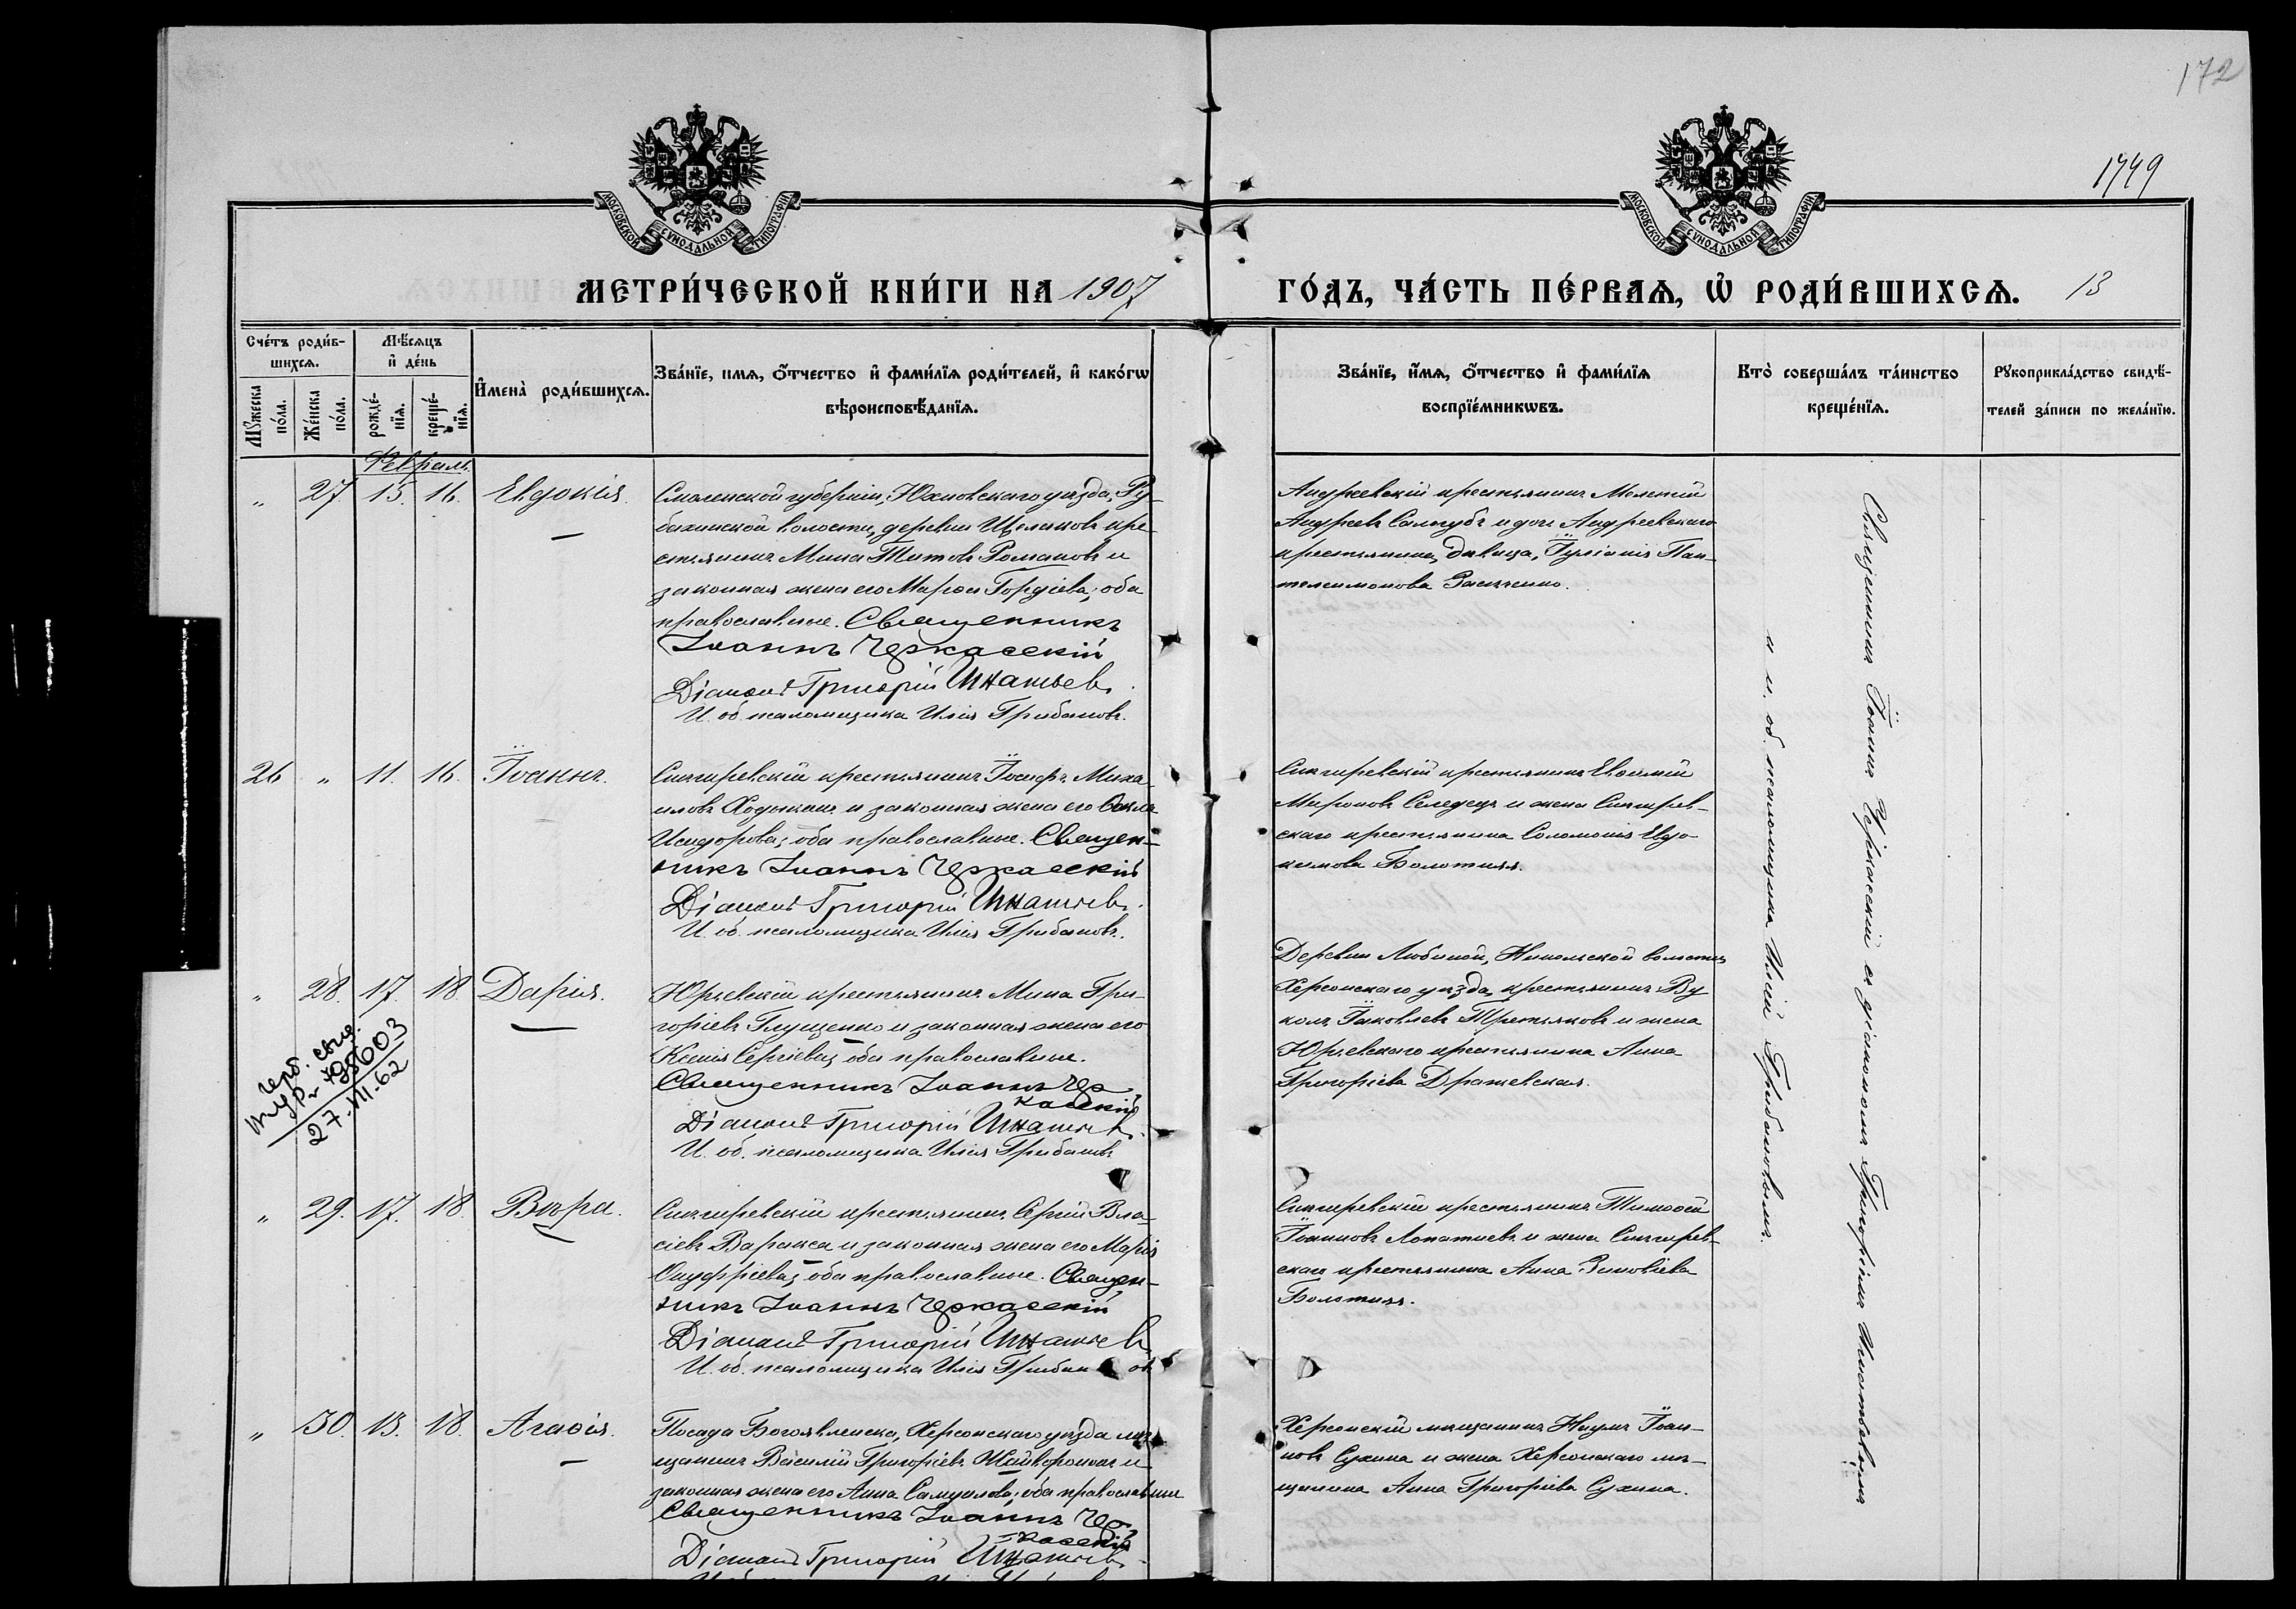 172
1449
МОСКОВСКОЙ СѴНОДАЛЬНОЙ ТИПОГРАФІИ
МОСКОВСКОЙ СѴНОДАЛЬНОЙ ТИПОГРАФІИ
МЕТРИ́ЧЕСКОЙ КНИ́ГИ НА 1907 ГО́ДЪ, ЧА́СТЬ ПЕ́РВАѦ, Ѡ҆ РОДИ́ВШИХСѦ. 13
Сче́тъ роди́в-
шихсѧ.
Мꙋ́жеска по́ла.
Же́нска по́ла.
Мѣ́сѧцъ
и҆ де́нь
рожде́нїѧ.
креще́нїѧ.
И҆мена̀ роди́вшихсѧ.
Зва́нїе, имѧ, ѻ҆́тчество и҆ фами́лїѧ роди́телей, и҆ како́гѡ
вѣроисповѣ́данїѧ.
Зва́нїе, и҆́мѧ, ѻ҆́тчество и҆ фами́лїѧ
воспрїе́мникѡвъ.
Кто̀ соверша́лъ та́инство
креще́нїѧ.
Рꙋкоприкла́дство свидѣ́-
телей за́писи по жела́нїю.
Февраль.
„ 27. 15. 16. Евдокія.
Смоленской губерніи, Юхновскаго уѣзда, Ру-
бихинской волости, деревни Щелканов кре-
стьянинъ Мина Титовъ Романовъ и
законная жена его Марѳа Гордіева; оба
православные. Священникъ
Іоаннъ Черкасскій
Діаконъ Григорій Игнатьевъ.
И. об. псаломщика Илія Грибановъ.
Андреевскій крестьянинъ Мелетій
Андреевъ Салогубъ и дочь Андреевскаго
крестьянина, дѣвица, Іуліанія Пан-
телеимонова Заиченко.
Священникъ Іоаннъ Черкасскій съ діакономъ Григоріемъ Игнатьевымъ
и и. об. псаломщика Иліей Грибановымъ.
26 „ 11. 16. Іоаннъ.
Снигиревскій крестьянинъ Іосифъ Миха-
иловъ Ходыкинъ и законная жена его Ѳекла
Исидорова; оба православные. Священ-
никъ Іоаннъ Черкасскій
Діаконъ Григорій Игнатьевъ.
И. об. псаломщика Илія Грибановъ.
Снигиревскій крестьянинъ Евѳимій
Мироновъ Селедецъ и жена Снигирев-
скаго крестьянина Соломонія Евдо-
кимова Болотняя.
„ 28. 17. 18. Дарія.
герб. свид.
95603
27-VII.62
Юрьевскій крестьянинъ Мина Гри-
горіевъ Глущенко и законная жена его
Ксенія Сергіева; оба православные.
Священникъ Іоаннъ Чер-
касскій
Діаконъ Григорій Игнатьевъ.
И. об. псаломщика Илія Грибановъ
Деревни Любиной, Никольской волости,
Херсонскаго уѣзда, крестьянинъ Ву-
колъ Іаковлевъ Третьяковъ и жена
Юрьевскаго крестьянина Анна
Григоріева Дражевская.
„ 29. 17. 18. Вѣра.
Снигиревскій крестьянинъ Сергій Вла-
сіевъ Варакса и законная жена его Марія
Онуфріева; оба православные. Священ-
никъ Іоаннъ Черкасскій
Діаконъ Григорій Игнатьевъ
И. об. псаломщика Илія Грибановъ
Снигиревскій крестьянинъ Тимоѳей
Іоанновъ Лопатневъ и жена Снигирев-
скаго крестьянина Анна Зиновіева
Болотняя.
„ 30. 13. 18. Агаѳія.
Посада Богоявленска, Херсонскаго уѣзда мѣ-
щанинъ Василій Григоріевъ Жайворонокъ и
законная жена его Анна Самуилова; оба православные
Священникъ Іоаннъ Чер-
касскій
Діаконъ Григорій Игнатьевъ.
Херсонскій мѣщанинъ Наумъ Іоан-
новъ Сухина и жена Херсонскаго мѣ-
щанина Анна Григоріева Сухина.